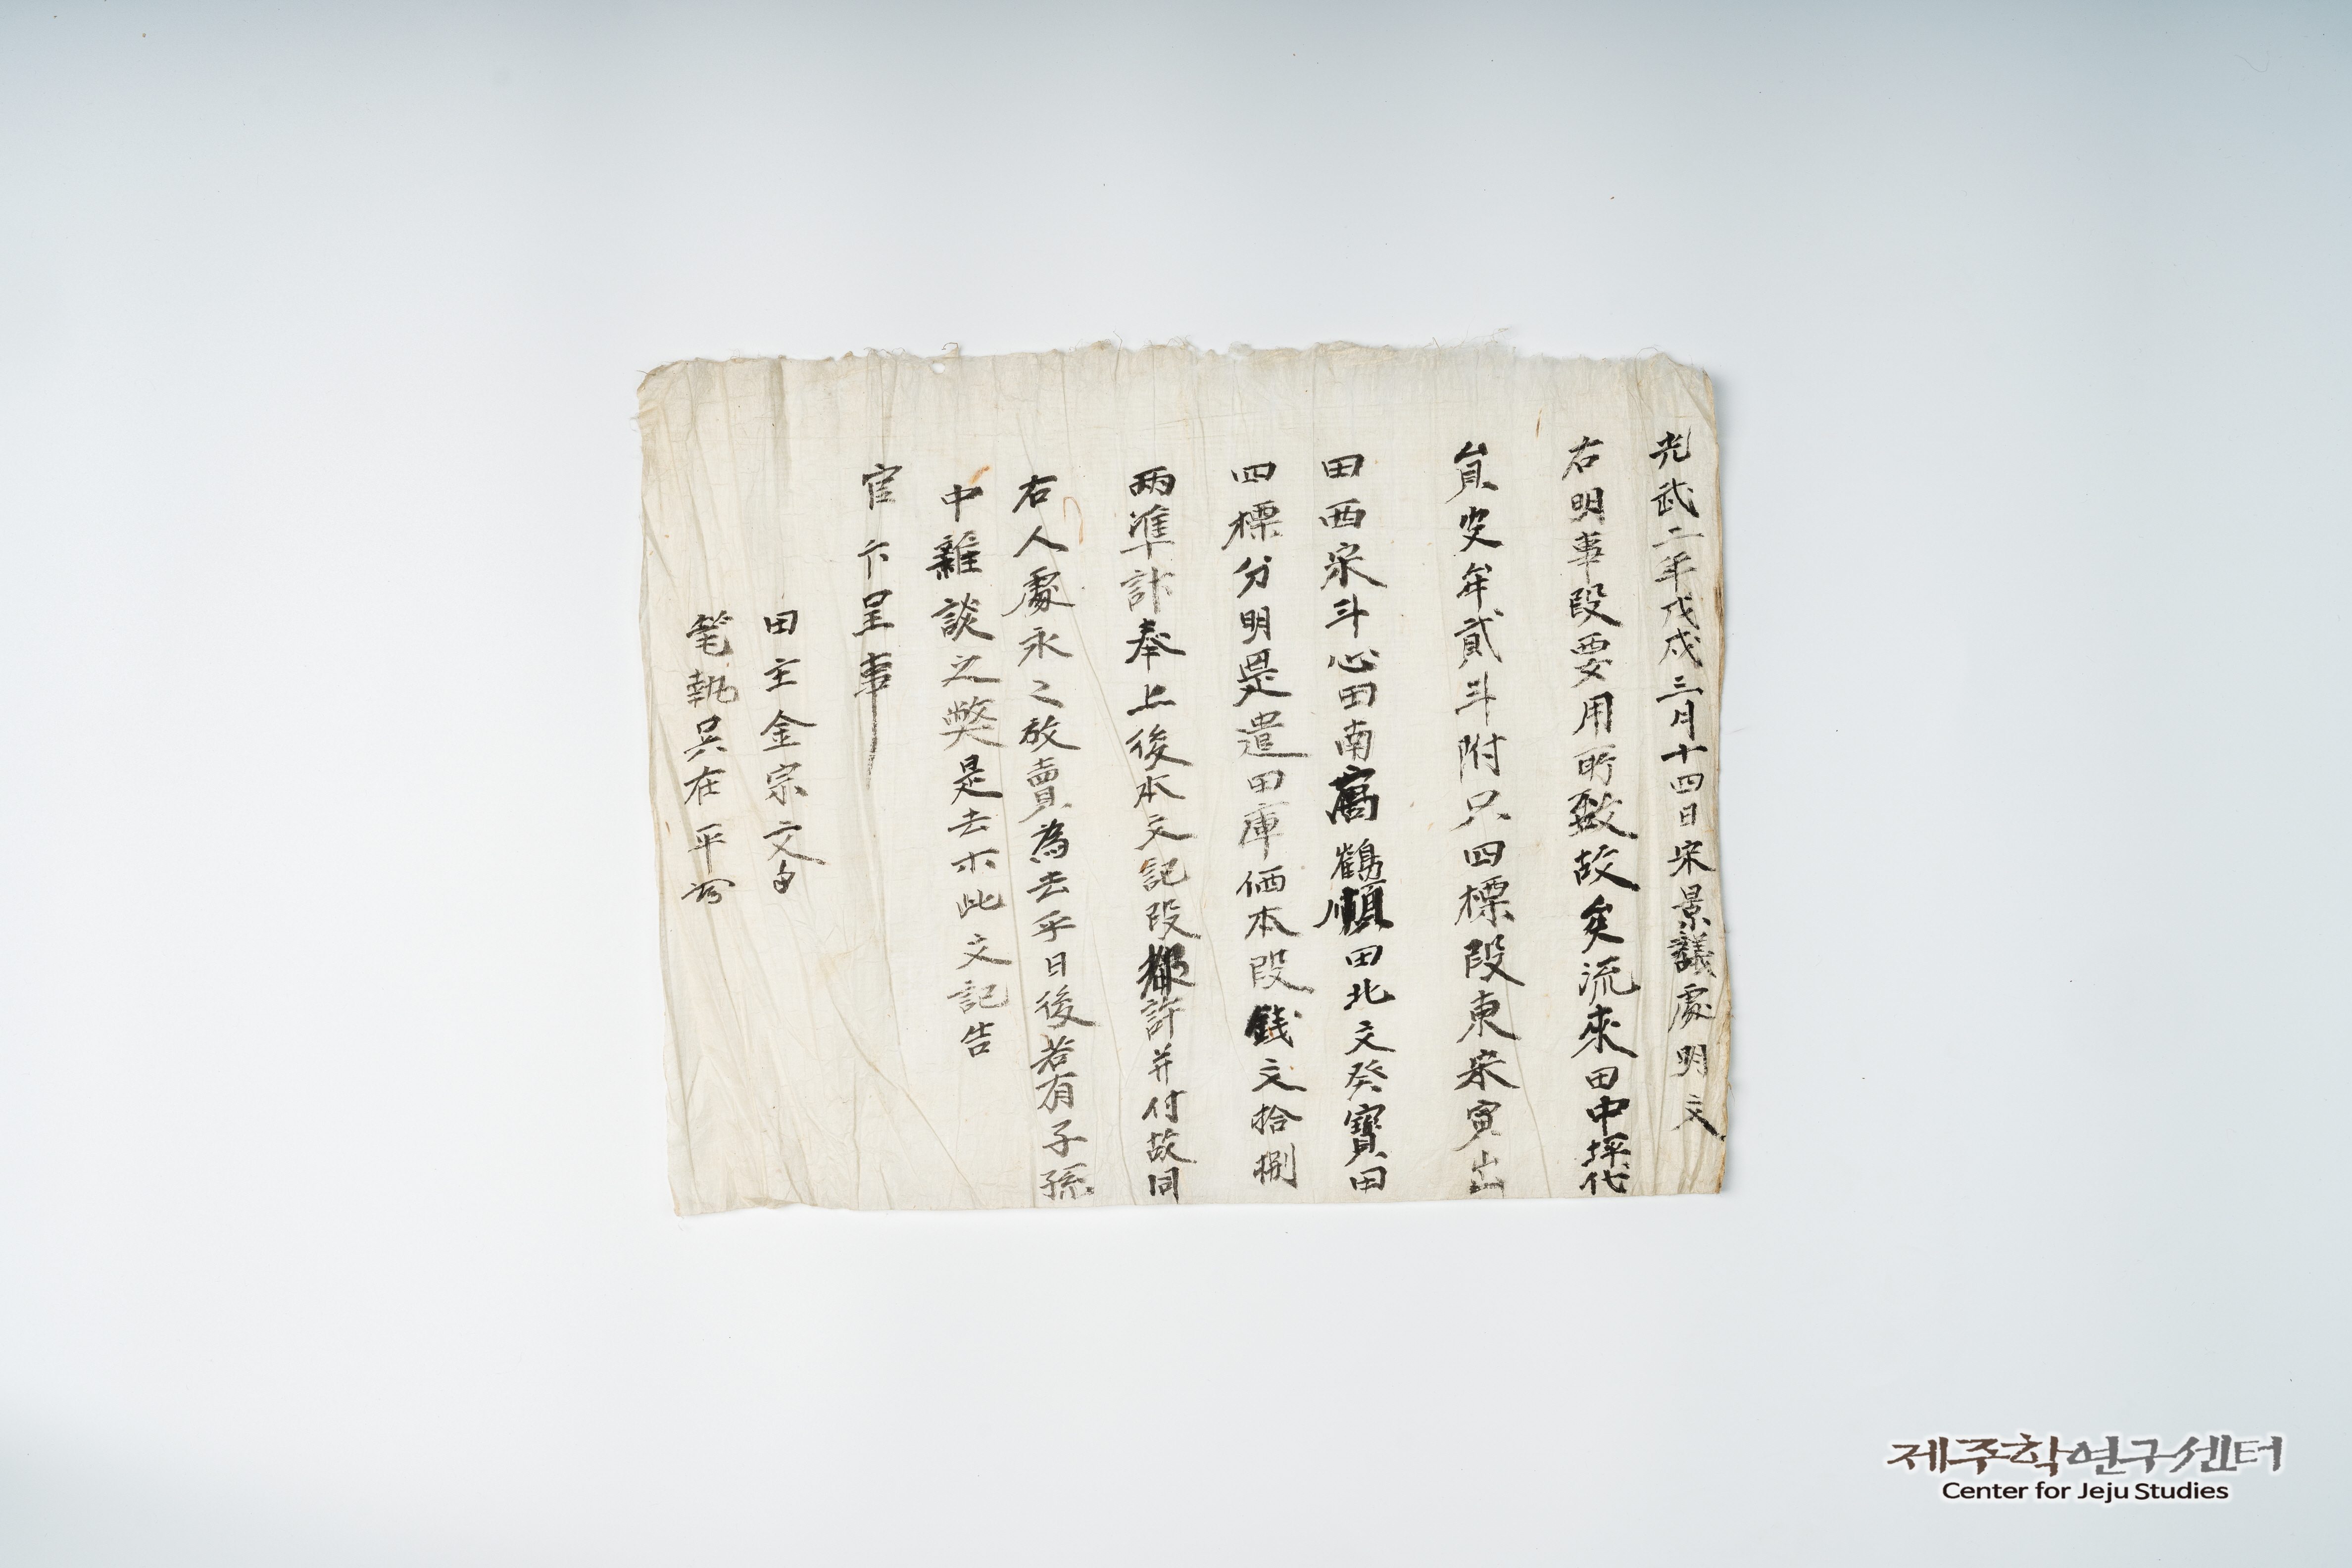 光武二年戊戌三月十四日宋景議處明文
右明事段要用所致故矣流來田中坪代
員安牟貳斗附只四標段東宋寅出
田西宋斗心田南高鶴順田北文癸寶田
四標分明是遣田庫価本段錢文拾捌
兩準計奉上後本文記段都許并付故同
右人處永々放賣為去乎日後若有子孫
中雜談之弊是去木此文記告
官卞呈事
田主金宗文
筆執吳在平
제주학연구센터
Center for Jeju Studies